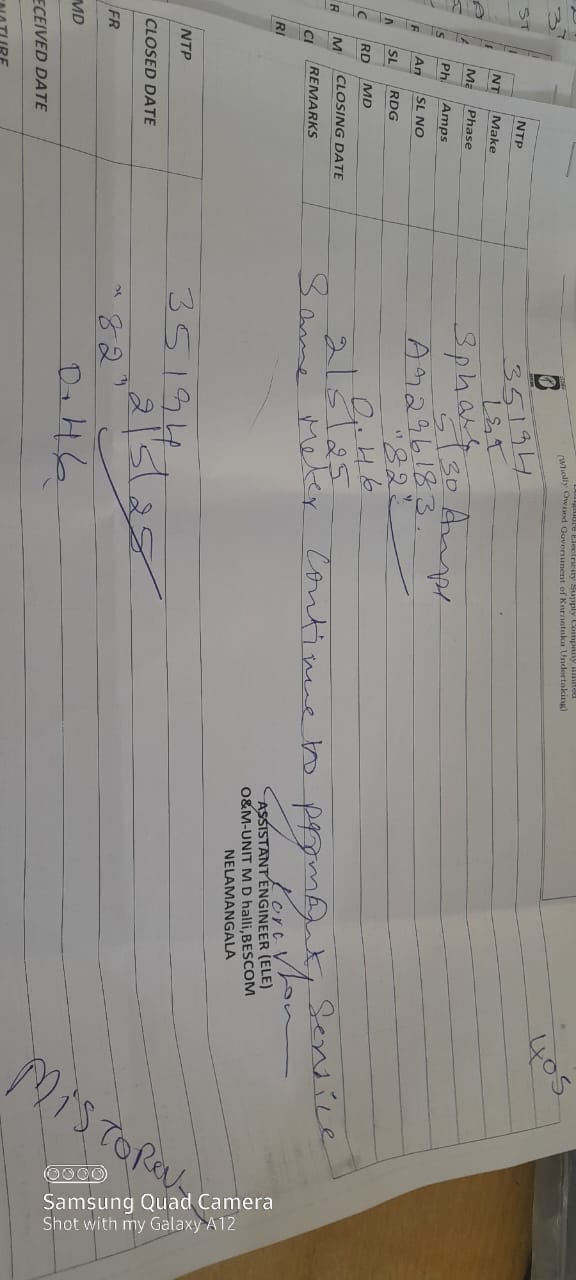 Bangalore Electricity Supply Company Limited
(Wholly Owned Government of Karnataka Undertaking)
NTP 35194
Make L&T
Phase 3 phase
Amps 5/30 Amps
SL NO 296183.
RDG "82"
MD 0.46
CLOSING DATE 2/5/25
REMARKS Same meter continue to permant, service
ASSISTANT ENGINEER (ELE)
O&M-UNIT M D halli,BESCOM
NELAMANGALA
NTP 35194
CLOSED DATE 2/5/25
FR "82"
MD 0.46
CEIVED DATE
NATURE
Samsung Quad Camera
Shot with my Galaxy A12